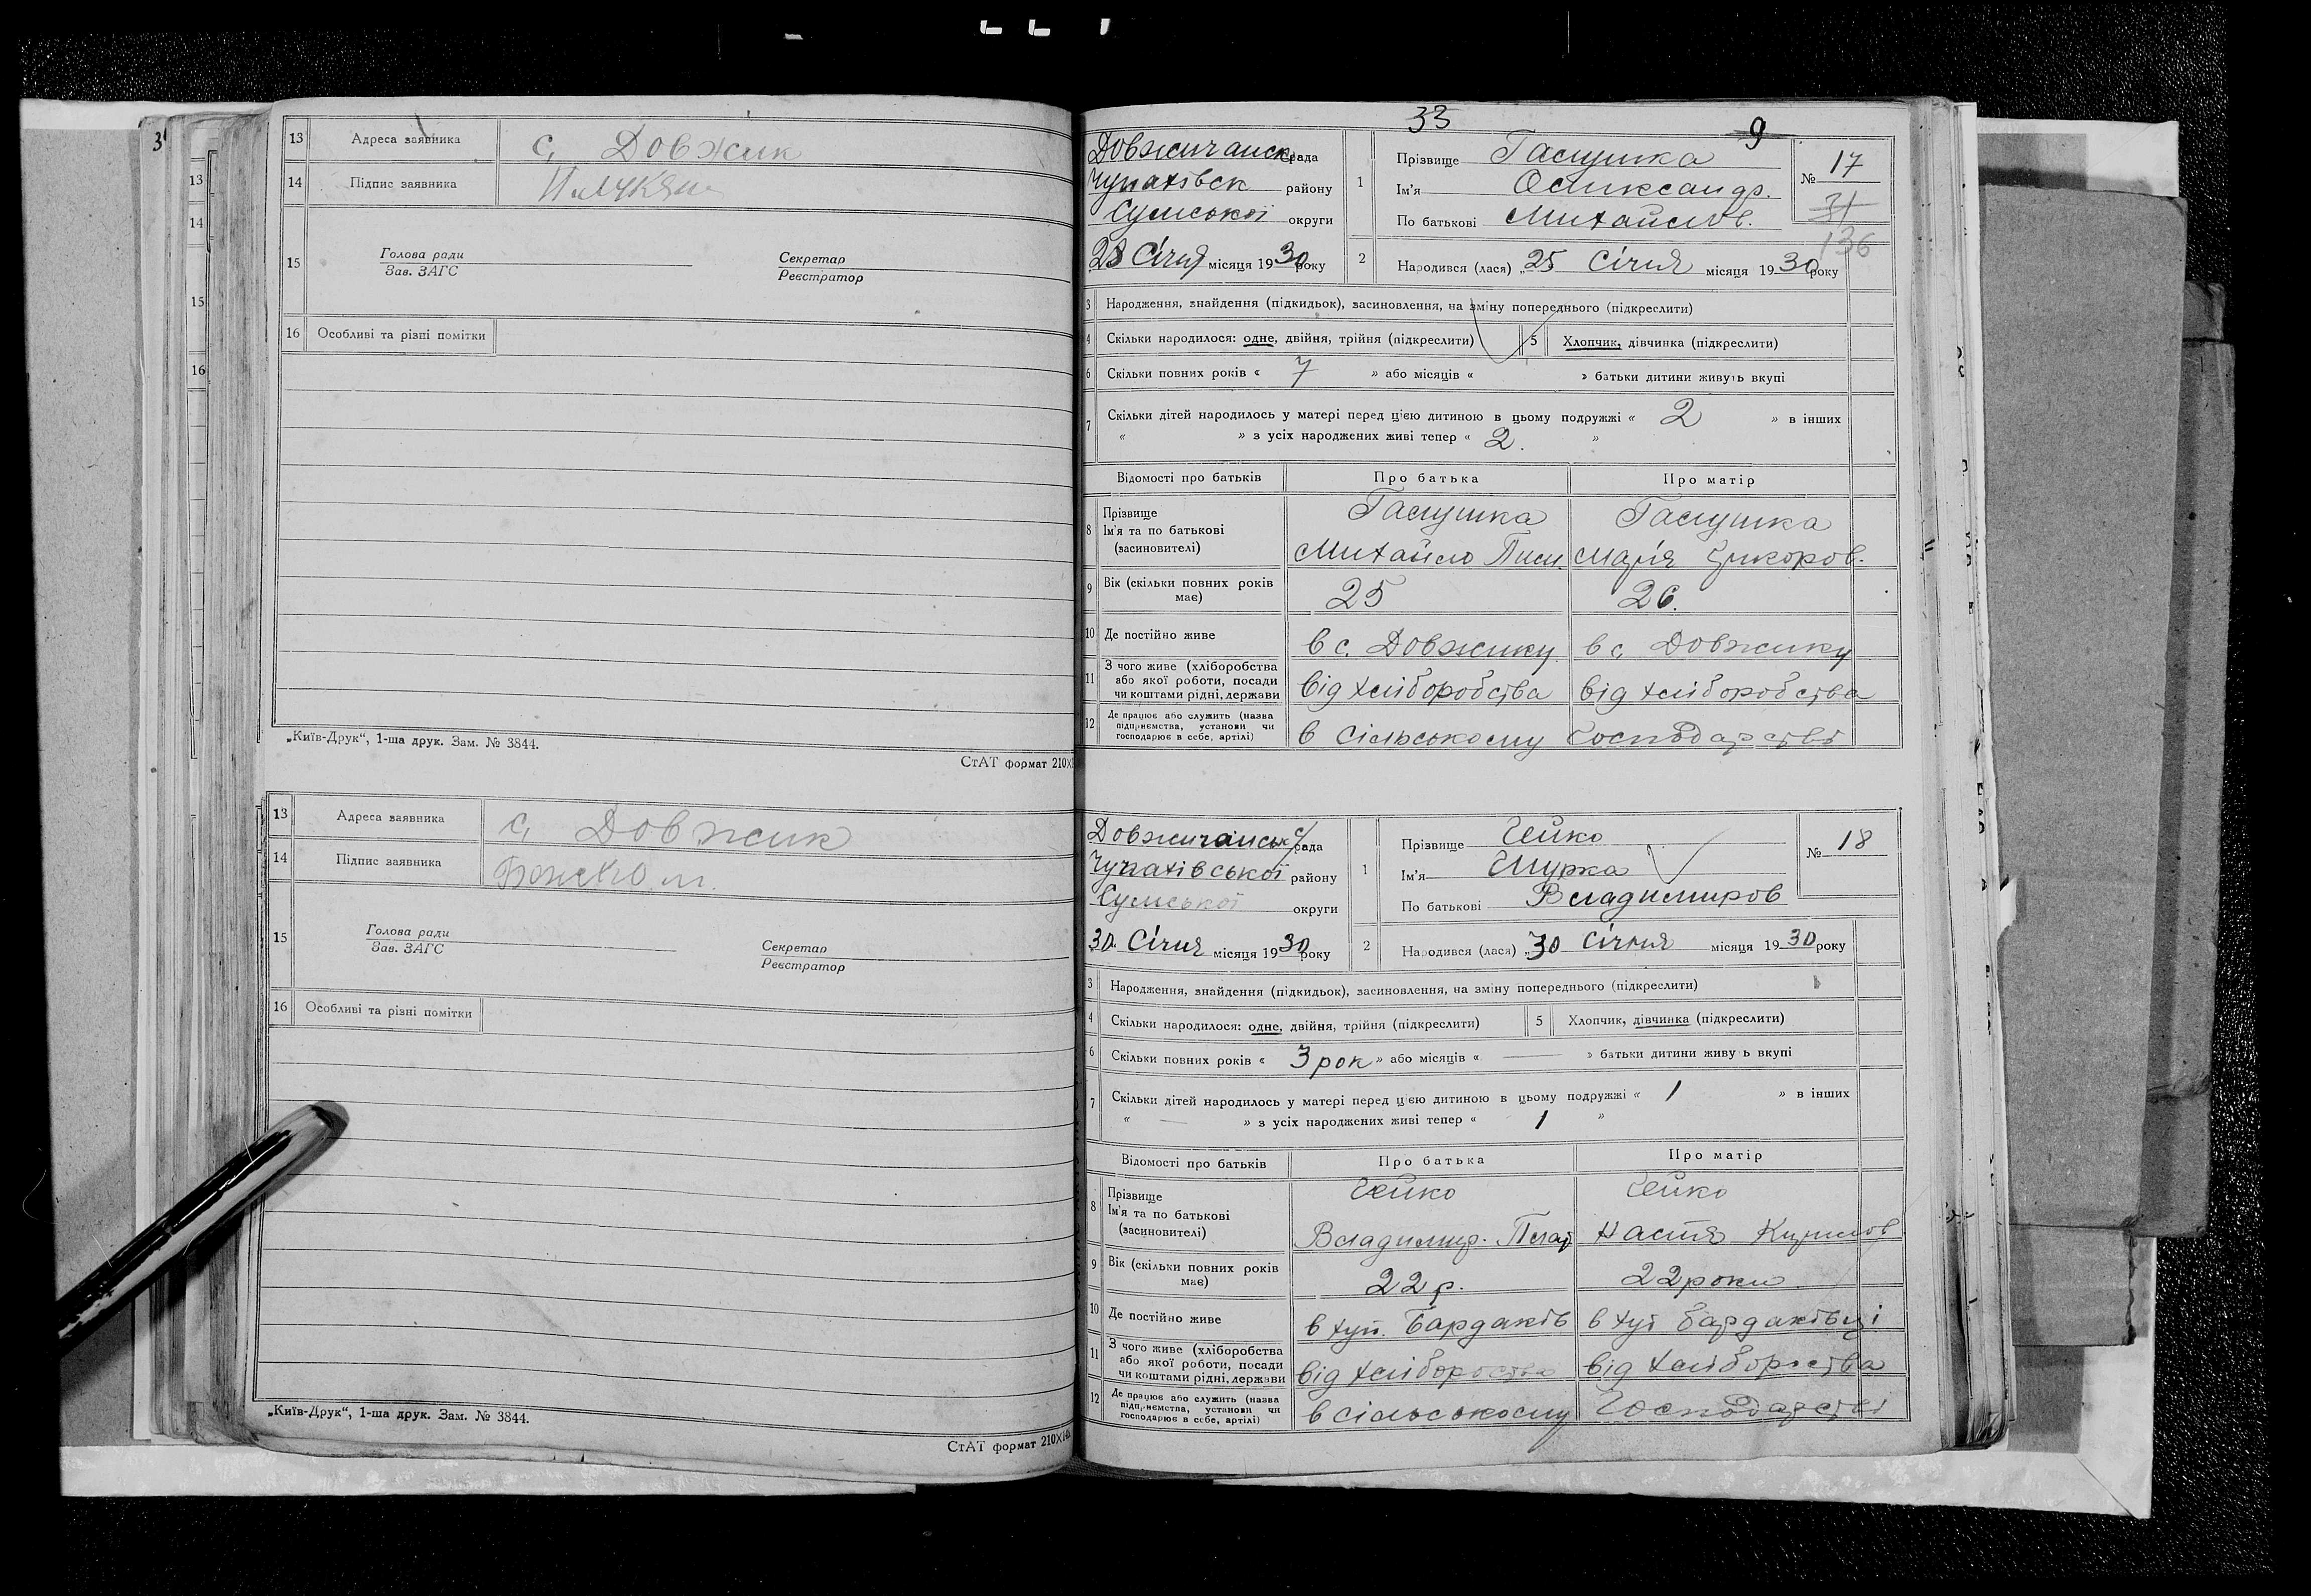 13 Адреса заявника с. Довжик
14 Підпис заявника
15 Голова ради Секретар
Зав. ЗАГС Реєстратор
16 Особливі та різні помітки
„Київ-Друк“, 1-ша друк. Зам. № 3844.
СтАТ формат 210
13 Адреса заявника с. Довжик
14 Підпис заявника Божко
15 Голова ради Секретар
Зав. ЗАГС Реєстратор
16 Особливі та різні помітки
„Київ-Друк“, 1-ша друк. Зам. № 3844.
СтАТ формат 210
3
13
14
15
16
33
9
Довжичанськ рада
Чупахівск району
Сумської округи
28 Січня місяця 1930 року
1 Прізвище Галушка
Ім'я Оликсандр.
По батькові Михайлов.
№ 17
31
136
2 Народився (лася) „25 Січня місяця 1930 року
3 Народження, знайдення (підкидьок), засиновлення, на зміну попереднього (підкреслити)
4 Скільки народилося: одне, двійня, трійня (підкреслити) 5 Хлопчик, дівчинка (підкреслити)
6 Скільки повних років « 7 » або місяців « » батьки дитини живуть вкупі
7 Скільки дітей народилось у матері перед цією дитиною в цьому подружжі « 2 » в інших
« » з усіх народжених живі тепер « 2. »
Відомості про батьків Про батька Про матір
8 Прізвище Галушка Галушка
Ім'я та по батькові
(засиновителі) Михайло Пил. Марія Григоров.
9 Вік (скільки повних років має) 25 26.
10 Де постійно живе в с. Довжику в с. Довжику
11 З чого живе (хліборобства
або якої роботи, посади
чи коштами рідні, держави від хліборобства від хліборобства
12 Де працює або служить (назва
підприємства, установи чи
господарює в себе, артілі) в сільському господарстві
Довжичанськ с/рада
Чупахівської району
Сумської округи
30 Січня місяця 1930 року
1 Прізвище Гейко
Ім'я Шурка
По батькові Владимиров
№ 18
2 Народився (лася) „30 Січня місяця 1930 року
3 Народження, знайдення (підкидьок), засиновлення, на зміну попереднього (підкреслити)
4 Скільки народилося: одне, двійня, трійня (підкреслити) 5 Хлопчик, дівчинка (підкреслити)
6 Скільки повних років « 3 рок » або місяців « — » батьки дитини живуть вкупі
7 Скільки дітей народилось у матері перед цією дитиною в цьому подружжі « 1 » в інших
« — » з усіх народжених живі тепер « 1 »
Відомості про батьків Про батька Про матір
8 Прізвище Гейко Гейко
Ім'я та по батькові
(засиновителі) Владимир. Плат Настя Кирилов
9 Вік (скільки повних років має) 22 р. 22 роки
10 Де постійно живе в хут. Бардаків в хут Бардаківці
11 З чого живе (хліборобства
або якої роботи, посади
чи коштами рідні, держави від хлібороства від хлібороства
12 Де працює або служить (назва
підприємства, установи чи
господарює в себе, артілі) в сільському господарстві